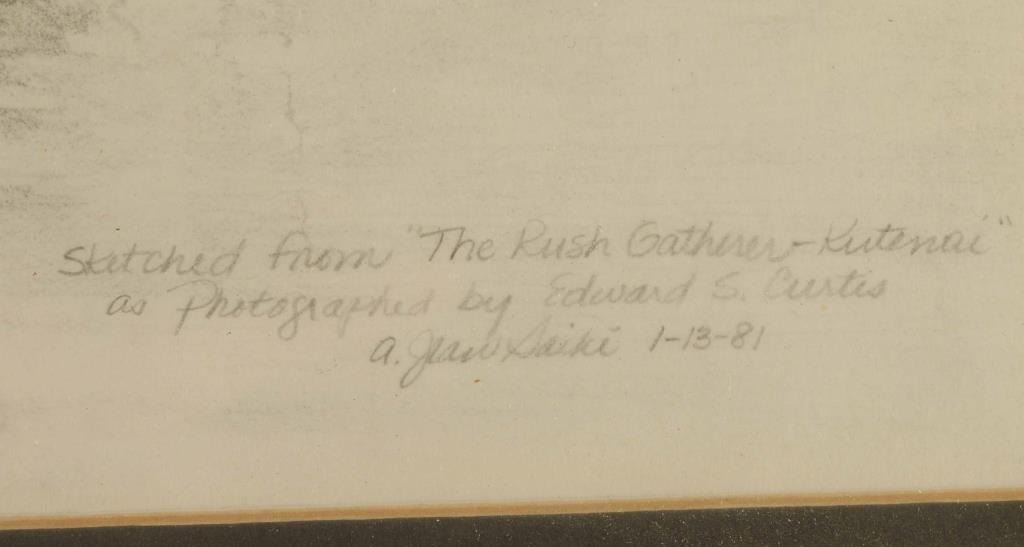 Sketched from "The Rush Gatherer - Kutenai"
as Photographed by Edward S. Curtis
A. Jean Saiki 1-13-81